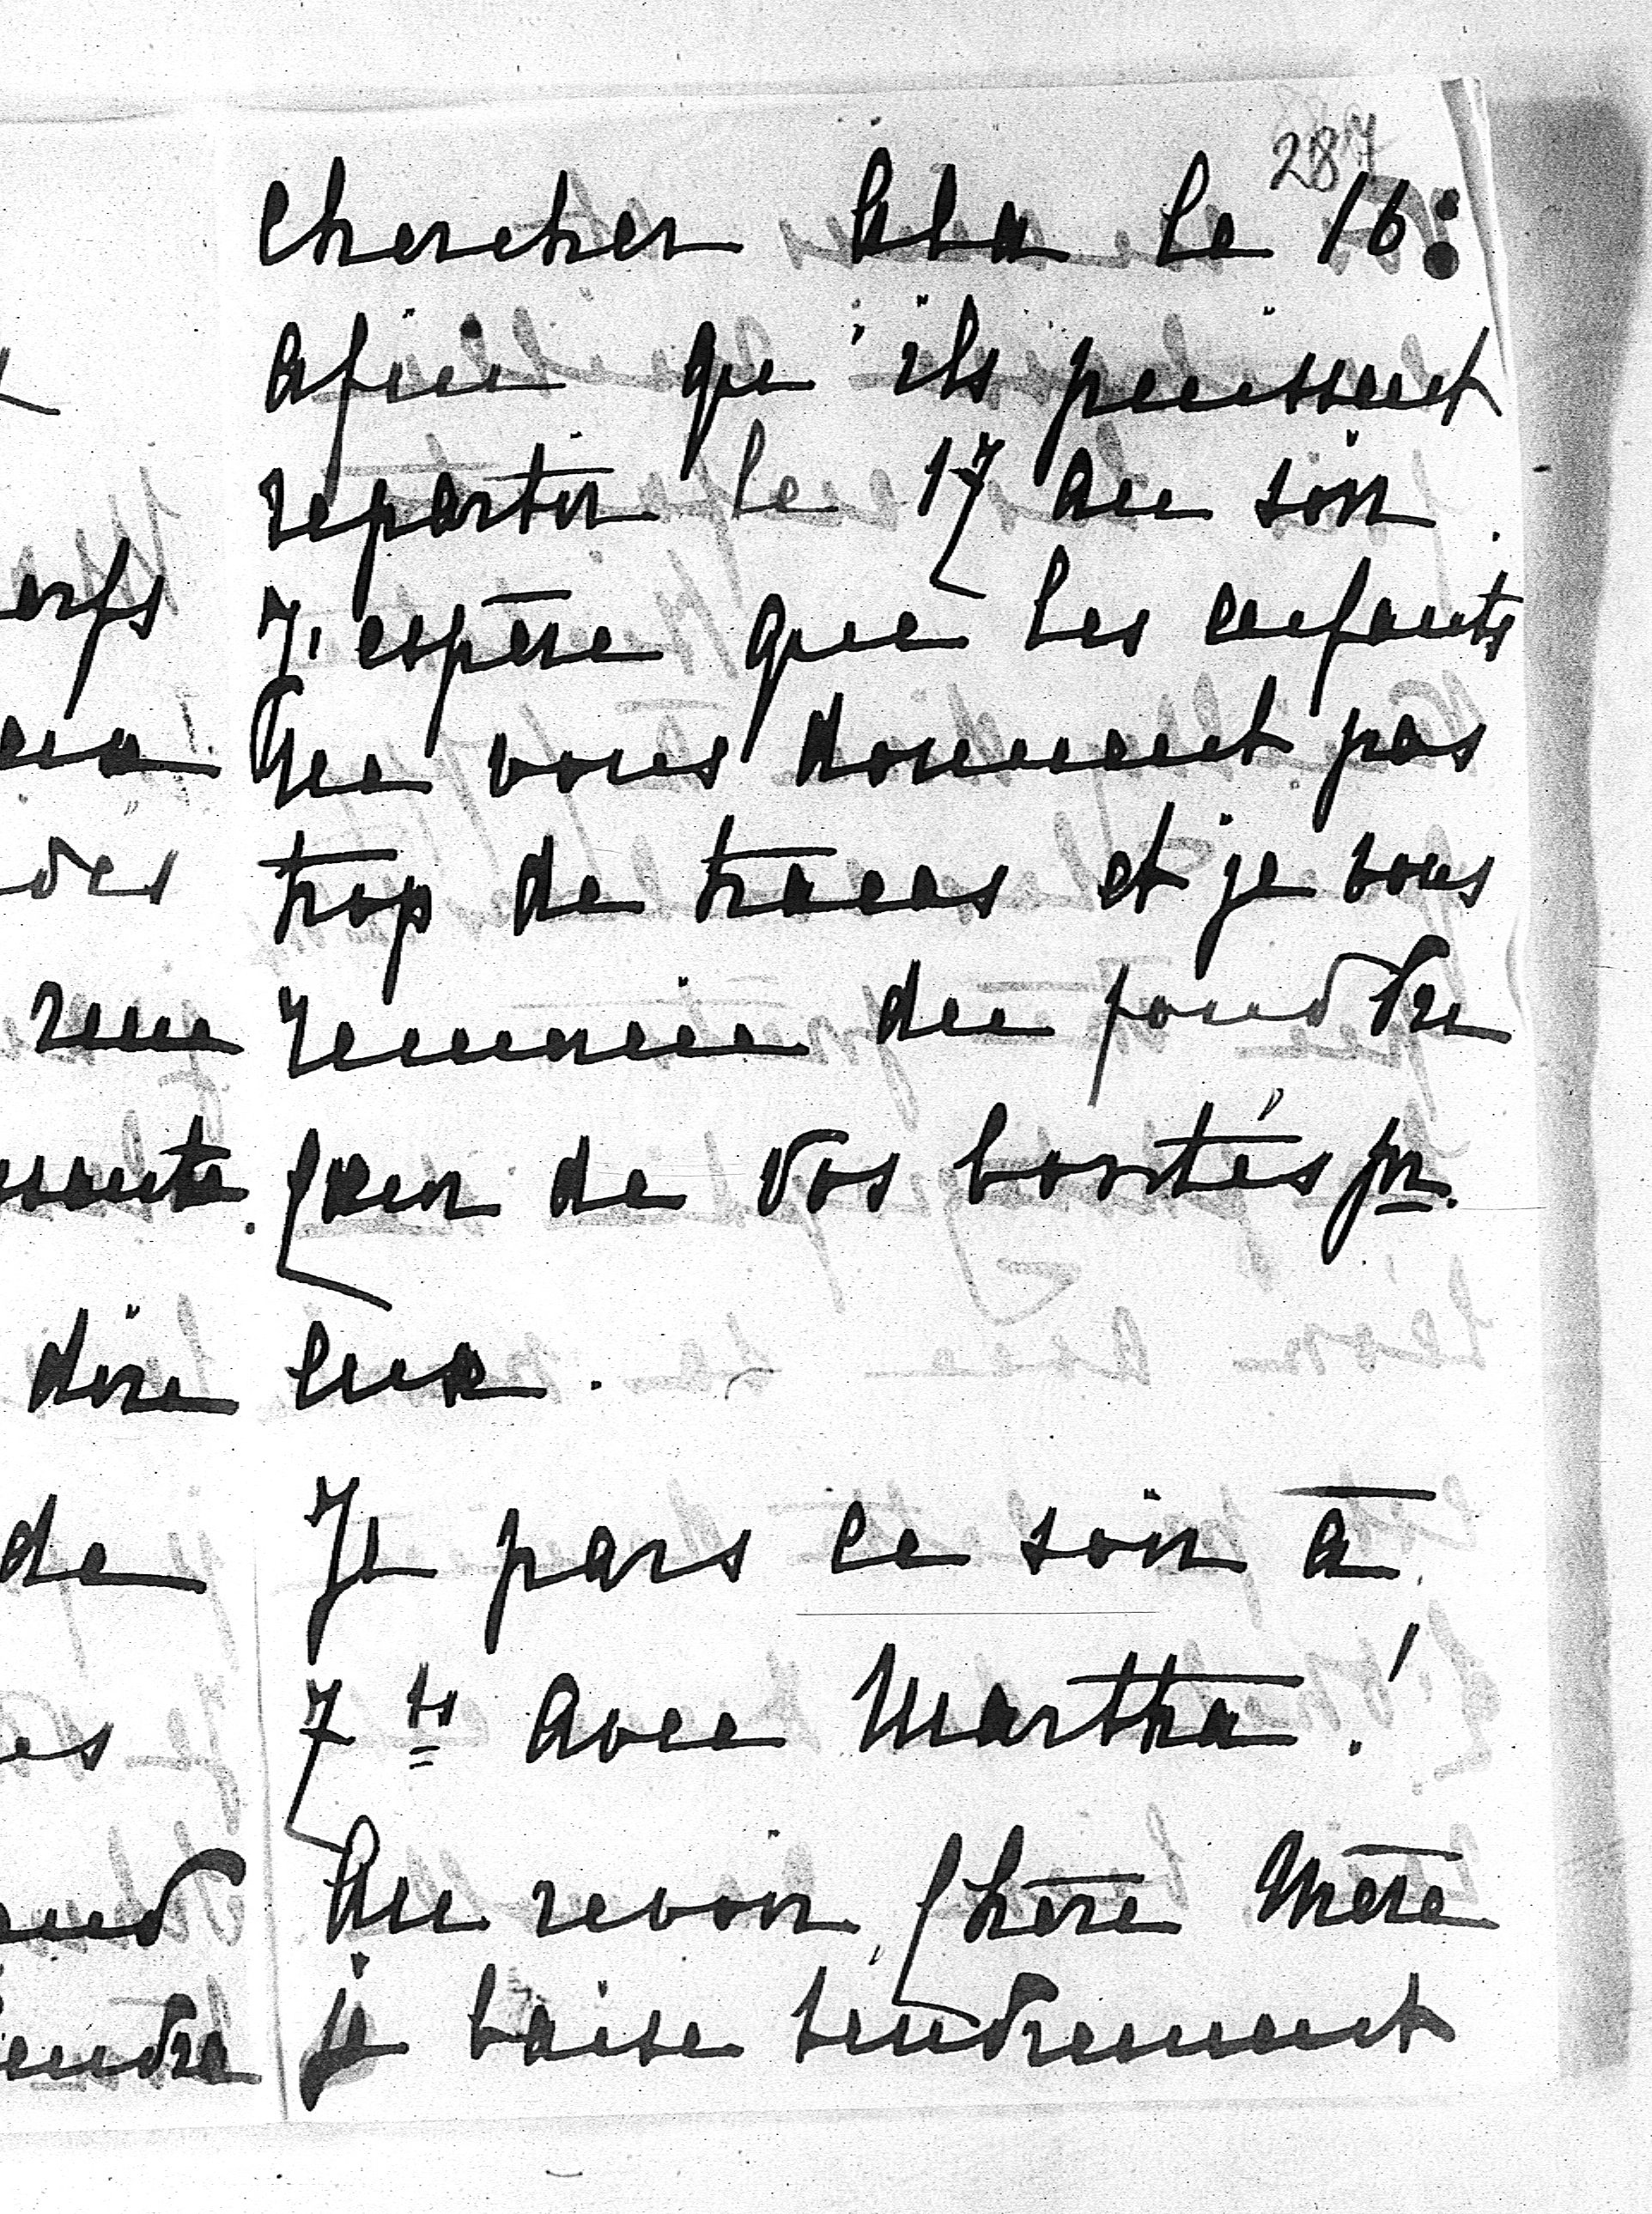 287
Chercher Lala le 16:
Afin qu'ils puissent
repartir le 17 au soir.
J'espère que les enfants
Ne vous donnent pas
trop de tracas et je vous
remercie du fond du
cœur de vos bontés pr.
eux.
Je pars ce soir à
7 H avec Martha!
Au revoir, Chère Mère
je baise tendrement
erfs
des
dire
de
es